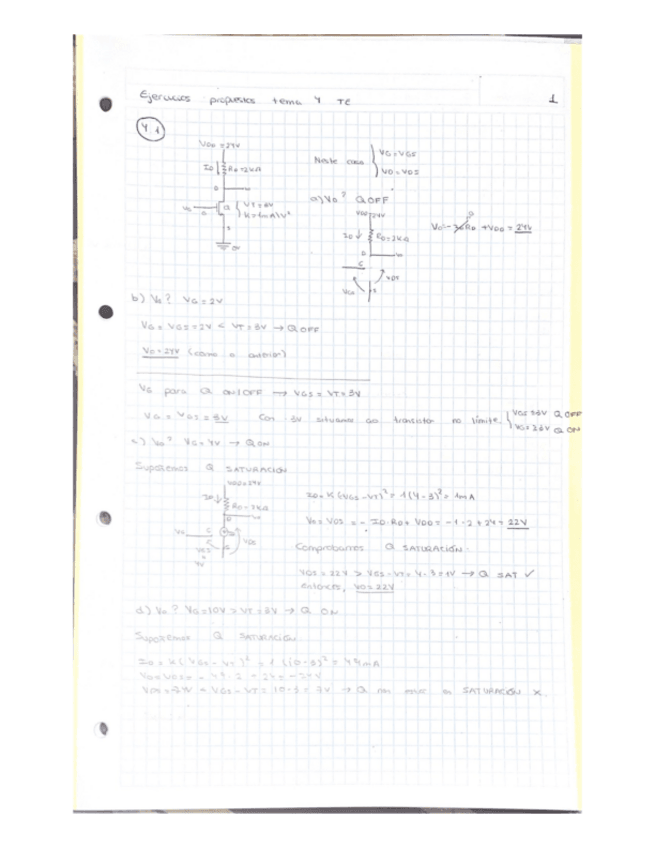 Ejercicios propuestos tema 4 TE
1
4.1
VDD = 24V
ID RD=2KΩ
D
VG G Q VT=3V
S
0V
Neste caso VG=VGS
VO=VDS
a) VO? Q OFF
VDD=24V
ID RD=2KΩ
D
G
VGS S VDS
+VDD = 24V
b) VO? VG=2V
VG = VGS = 2V < VT = 3V → Q OFF
VO=24V (como o anterior)
VG para Q ON/OFF → VGS = VT = 3V
VG = VGS = 3V Con 3V situamos ao transistor no límite
Q OFF
Q ON
c) VO? VG=4V → Q ON
Supoñemos Q SATURACIÓN
VDD=24V
ID RD=2KΩ
D
VG G
VGS S VDS
4V
ID = K(VGS-VT)² = 1(4-3)² = 1mA
VO = VDS = - ID·RD + VDD = -1·2 + 24 = 22V
Comprobamos Q SATURACIÓN:
VDS = 22V > VGS - VT = 4-3 = 1V → Q SAT ✓
entonces, VO=22V
d) VO? VG=10V > VT=3V → Q ON
Supoñemos Q SATURACIÓN
ID = K(VGS-VT)² = 1(10-3)² = 49mA
VO=VDS= - 49·2 + 24 =
< VGS - VT = 10-3 = 7V → Q non SATURACIÓN X